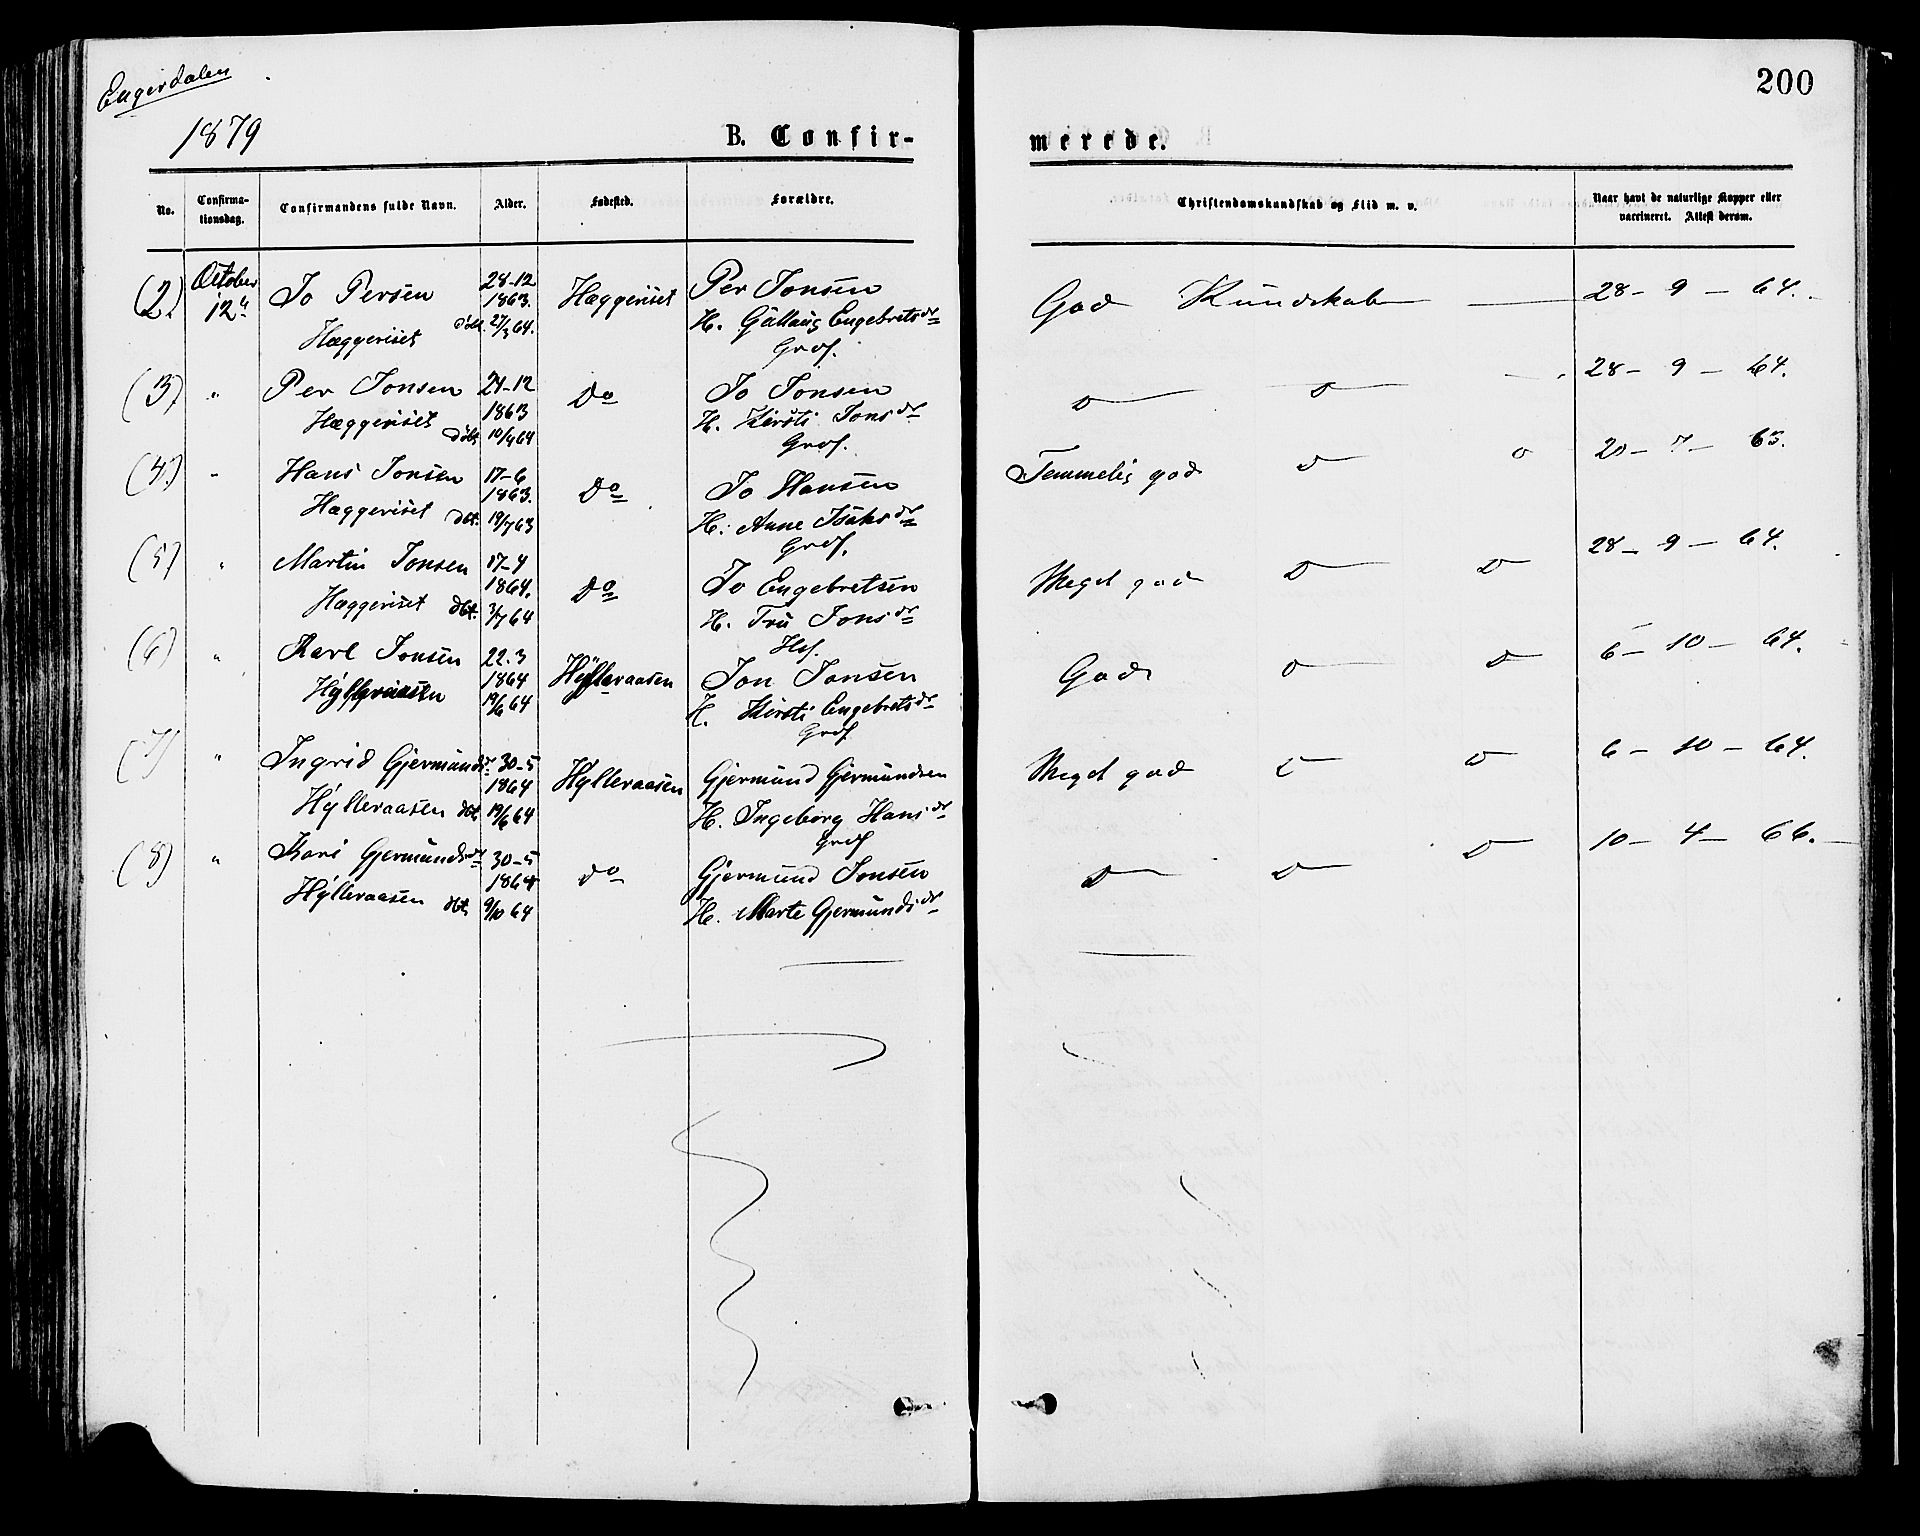 Engerdalen
1879
200
B. Confir-
merede.
No.
Confirma-
tionsdag.
Confirmandens fulde Navn.
Alder.
Fødested.
Forældre.
Christendomskundskab og Flid m. v.
Naar havt de naturlige Kopper eller
vaccineret. Attest derom.
(2) October Jo Persen 28-12 Hæggeriset Per Jonsen God Kundskab 28 - 9 - 64.
12" Hæggeriset døbt. 1863. 27/3 64. H. Gullaug Engebretsdr
Grdf.
(3) " Per Jonsen 24-12 do Jo Jonsen D D 28 - 9 - 64.
Hæggeriset døbt 1863 10/4 64 H. Kirsti Jonsdr
Grdf.
(4) " Hans Jonsen 17-6 do Jo Hansen Temmelig god D D 20 - 7 - 65.
Hæggeriset dbt. 1863. 19/7 63 H. Anne Isaksdr
Grdf.
(5) " Martin Jonsen 17-4 do Jo Engebretsen Meget god D D 28 - 9 - 64.
Hæggeriset dbt. 1864. 3/7 64 H. Tru Jonsdr
Hsf.
(6) " Karl Jonsen 22.3 Hylleraasen Jon Jonsen God D D 6 - 10 - 64.
Hylleraasen 1864 19/6 64 H. Kirsti Engebretsdr
Grdf
(7) " Ingrid Gjermundsdr 30-5 Hylleraasen Gjermund Gjermundsen Meget god D D 6 - 10 - 64.
Hylleraasen dbt. 1864 19/6 64 H. Ingeborg Hansdr
Grdf
(8) " Kari Gjermundsdr 30-5 do Gjermund Jonsen D D D 10 - 4 - 66.
Hylleraasen dbt. 1864 9/10 64 H. Marte Gjermundsdr